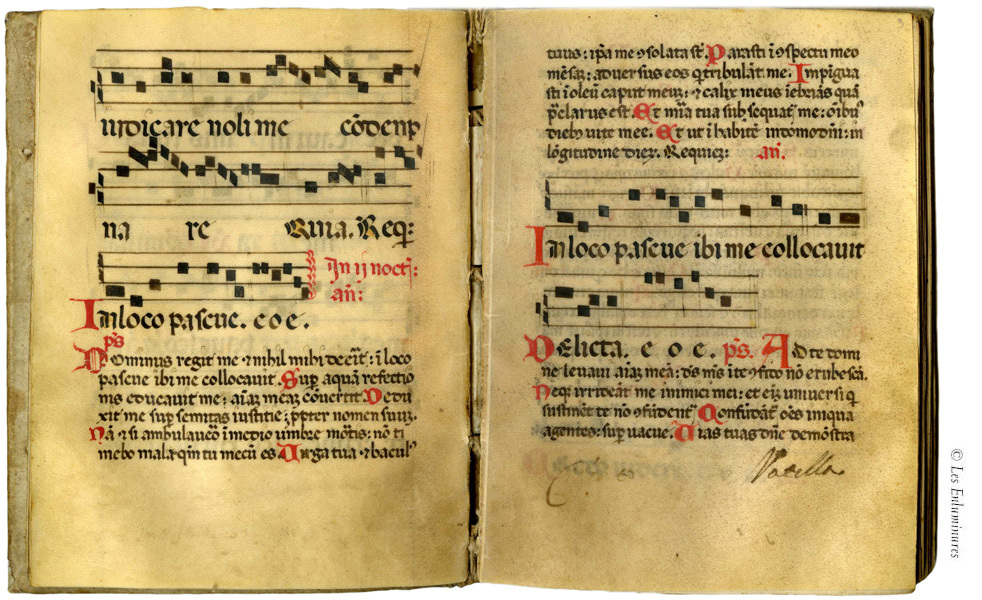 iudicare noli me cōdenp
na re Quia. Req̄:
In ij noctį:
añ:
In loco pascue. e o e.
ps̄
Dominus regit me ⁊ nihil mihi deeīt: ī loco
pascue ibi me collocauit. Sup aquā refectio
nis educauit me: aīaꝫ meaꝫ cōuertit. Dedu
xit me sup semitas iustitie: ꝓpter nomen suuꝫ.
Nā ⁊ si ambulauēo ī medio umbre mōtis: nō ti
mebo mala: qm̄ tu mecū es Uirga tua ⁊ bacul⁹
tuus: ip̄a me ꝯsolata st̄. Parasti ī ꝯspectu meo
mēsaꝫ: aduersus eos q̄ tribulāt me. Impīgua
sti ī oleū caput meuꝫ: ⁊ calix meus iebriās quā
p̄clarus est. Et mīa tua subsequat᷑ me: oībꝰ
diebꝰ uite mee. Et ut ī habitē in domo dn̄i: in
lōgitudine dieꝝ. Requieꝫ: añ.
In loco pascue ibi me collocauit
Delicta. e o e. ps̄. Ad te domi
ne leuaui aīaꝫ meā: ds̄ m̄s ī te ꝯfito nō erubescā.
Neqꝫ irrideāt me inimici mei: et eīꝫ uniuersi q̄
sustinēt te nō ꝯfūdent᷑ Confūdāt᷑ oēs iniqua
agentes: sup uacue. Uias tuas dn̄e demōstra
© Les Enluminures